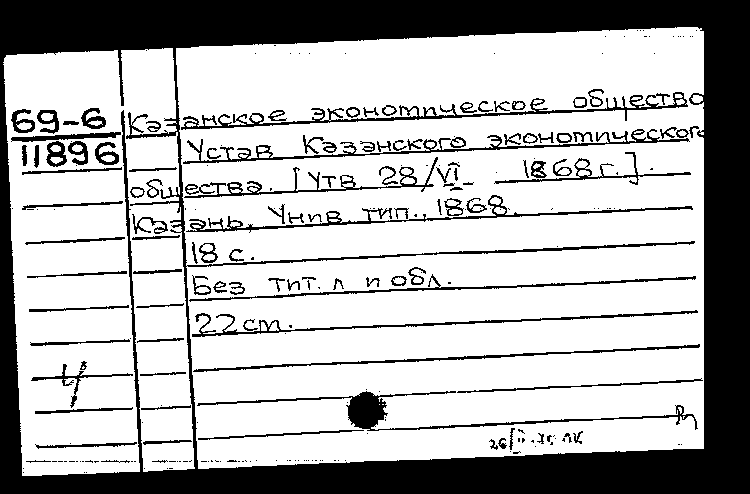 69-6 Казанское экономическое общество
11896 Устав Казанского экономического
общества. [Утв 28/VI 1868 г.].
Казань, Унив. тип., 1868.
18 с.
Без тит. л и обл.
22 cm.